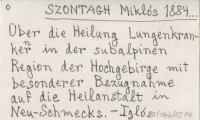 o SZONTAGH Miklós 1884...
Über die Heilung Lungenkran-
ker in der subalpinen
Region der Hochgebirge mit
besonderer Bezugnahme
auf die Heilanstalt in
Neu-Schmecks. - Igló